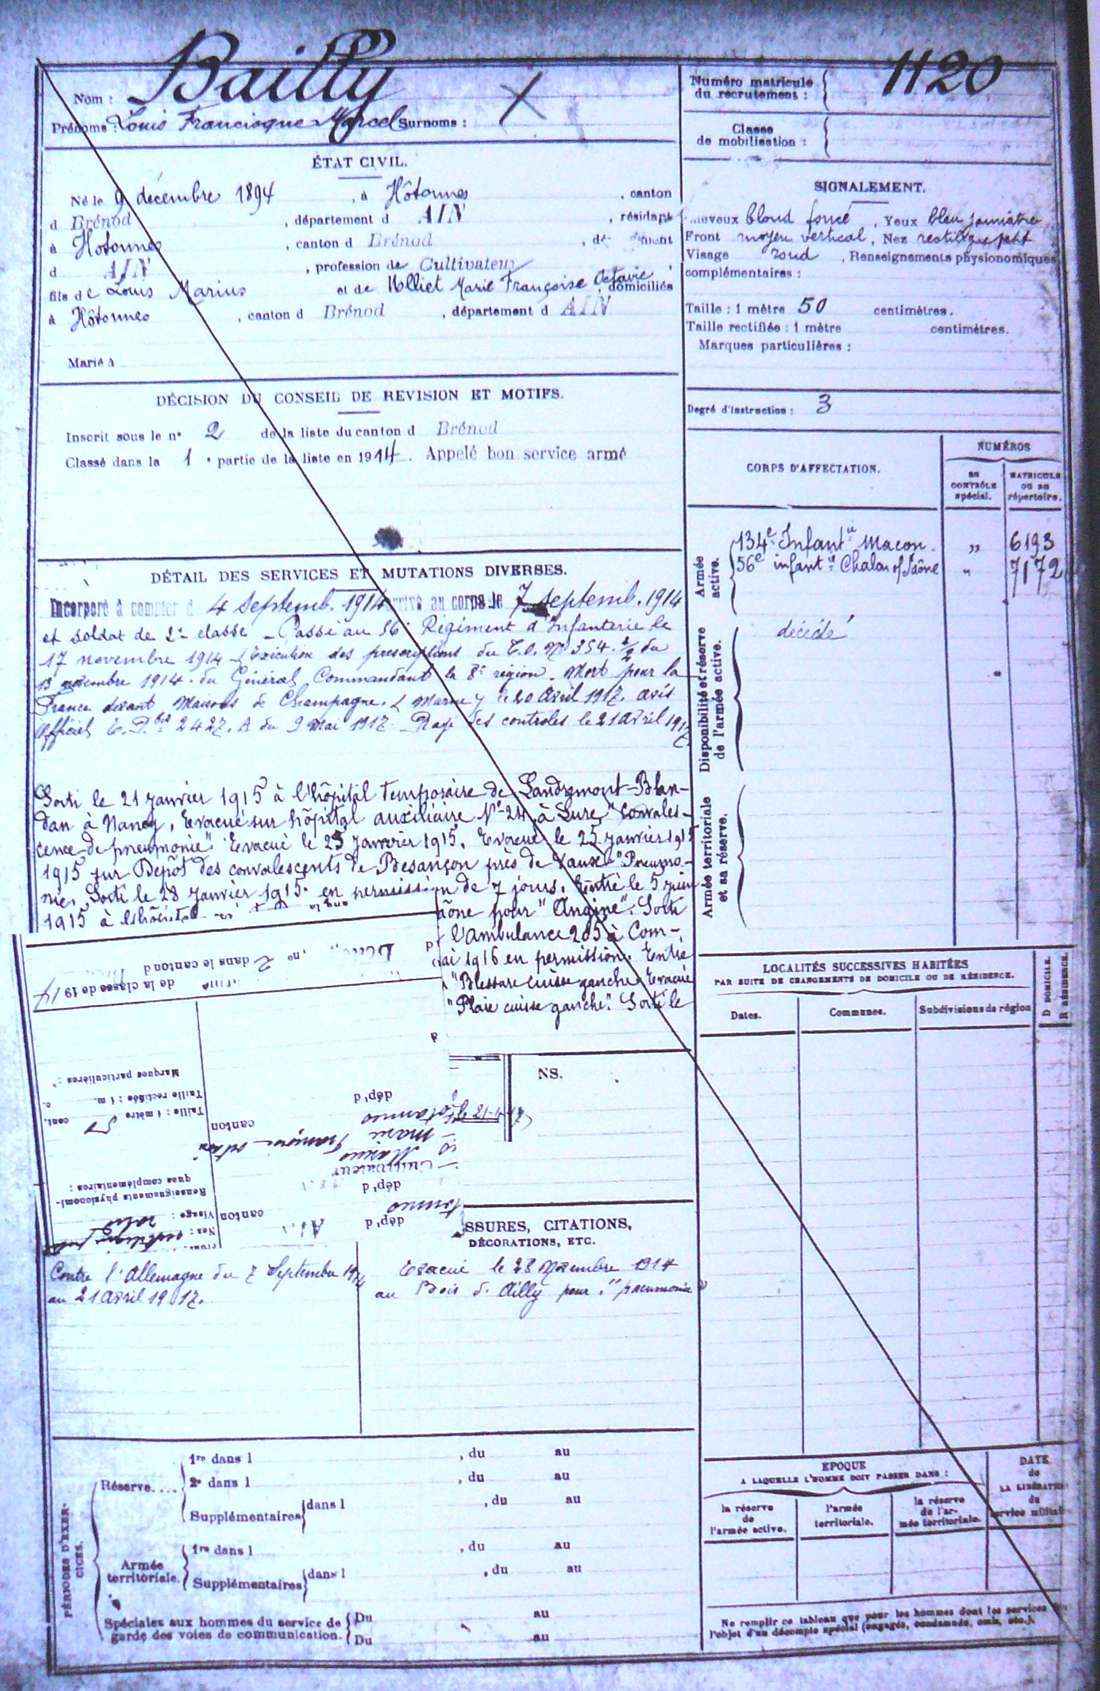 Bailly
Nom :
Prénoms : Louis Francisque Marcel Surnoms :
Numéro matricule
du recrutement :
1120
Classe
de mobilisation :
ÉTAT CIVIL.
Né le 9 décembre 1894, à Hôtonnes, canton
d Brénod, département d AIN, résidant
à Hotonnes, canton d Brénod, dé ment
d AIN, profession de Cultivateur
fils de Louis Marius et de Molliet Marie Françoise Octavie, domiciliés
à Hôtonnes, canton d Brénod, département d AIN
Marié à
SIGNALEMENT.
heveux blond foncé, Yeux bleu jaunâtre
Front moyen vertical, Nez rectiligne petit
Visage rond, Renseignements physionomiques
complémentaires :
Taille : 1 mètre 50 centimètres.
Taille rectifiée : 1 mètre centimètres.
Marques particulières :
Degré d'instruction : 3
DÉCISION DU CONSEIL DE REVISION ET MOTIFS.
Inscrit sous le n° 2 de la liste du canton d Brénod
Classé dans la 1e partie de la liste en 1914. Appelé bon service armé
CORPS D'AFFECTATION.
NUMÉROS
AU
CONTRÔLE
spécial.
MATRICULE
OU AU
répertoire.
Armée
active.
134e Infantie Macon. " 6193
56e infantie Chalon s/Saône " 7172
Disponibilité et réserve
de l'armée active.
décédé
Armée territoriale
et sa réserve.
DÉTAIL DES SERVICES ET MUTATIONS DIVERSES.
Incorporé à compter d 4 Septemb. 1914 arrivé au corps le 7 septemb. 1914
et soldat de 2e classe _ Passé au 56e Régiment d'Infanterie le
17 novembre 1914 (Exécution des prescriptions du T.O. No 354 2/2 du
13 novembre 1914 du Général Commandant la 8e région. Mort pour la
France devant Maisons de Champagne (Marne) le 20 Avril 1917. avis
officiel 2427. A du 9 Mai 1917 Rayé des controles le 21 avril 1917
Sorti le 21 janvier 1915 à l'hôpital temporaire de Landremont-Blan-
dan à Nancy, Evacué sur hôpital auxiliaire No 24 à Lure "convales-
cence de pneumonie" Evacué le 25 janvier 1915. Evacué le 25 janvier 1915
1915 sur Depôt des convalescents de Besançon près de Vaux "Pneumo-
nie, Sorti le 28 janvier 1915 en permission de 7 jours. Entré le 5 juin
1915 à
aône pour "Angine". Sorti
l'ambulance 205 à Com-
ai 1916 en permission. Entré
"Blessure cuisse gauche. Evacué
"Plaie cuisse gauche". Sorti le
n° 2 dans le canton d
de la classe de 1914
Marques particulières :
Taille rectifiée : 1 m. c.
Taille : 1 mètre 50 cent.
Renseignements physionomi-
ques complémentaires :
Visage : rond
Nez :
canton
dép't d
Marie Françoise
Marius
Cultivateur
dép't d
canton
dép't d
NS.
SSURES, CITATIONS,
DÉCORATIONS, ETC.
Contre l'Allemagne du 7 Septembre 1914
au 21 avril 1917.
Evacué le 28 Novembre 1914
au Bois d'Ailly pour "pneumonie"
LOCALITÉS SUCCESSIVES HABITÉES
PAR SUITE DE CHANGEMENTS DE DOMICILE OU DE RÉSIDENCE.
Dates.
Communes.
Subdivisions de région
D DOMICILE.
R RÉSIDENCE.
PÉRIODES D'EXER-
CICES.
Réserve....
1re dans l , du au
2e dans l , du au
Supplémentaires dans l , du au
Armée
territoriale.
1re dans l , du au
Supplémentaires dans l , du au
Spéciales aux hommes du service de
garde des voies de communication.
Du au
Du au
EPOQUE
A LAQUELLE L'HOMME DOIT PASSER DANS :
la réserve
de
l'armée active.
l'armée
territoriale.
la réserve
de l'ar-
mée territoriale.
DATE
de
LA LIBÉRATION
du
service militaire
Ne remplir ce tableau que pour les hommes dont les services
l'objet d'un décompte spécial (engagés, condamnés, omis, etc.).